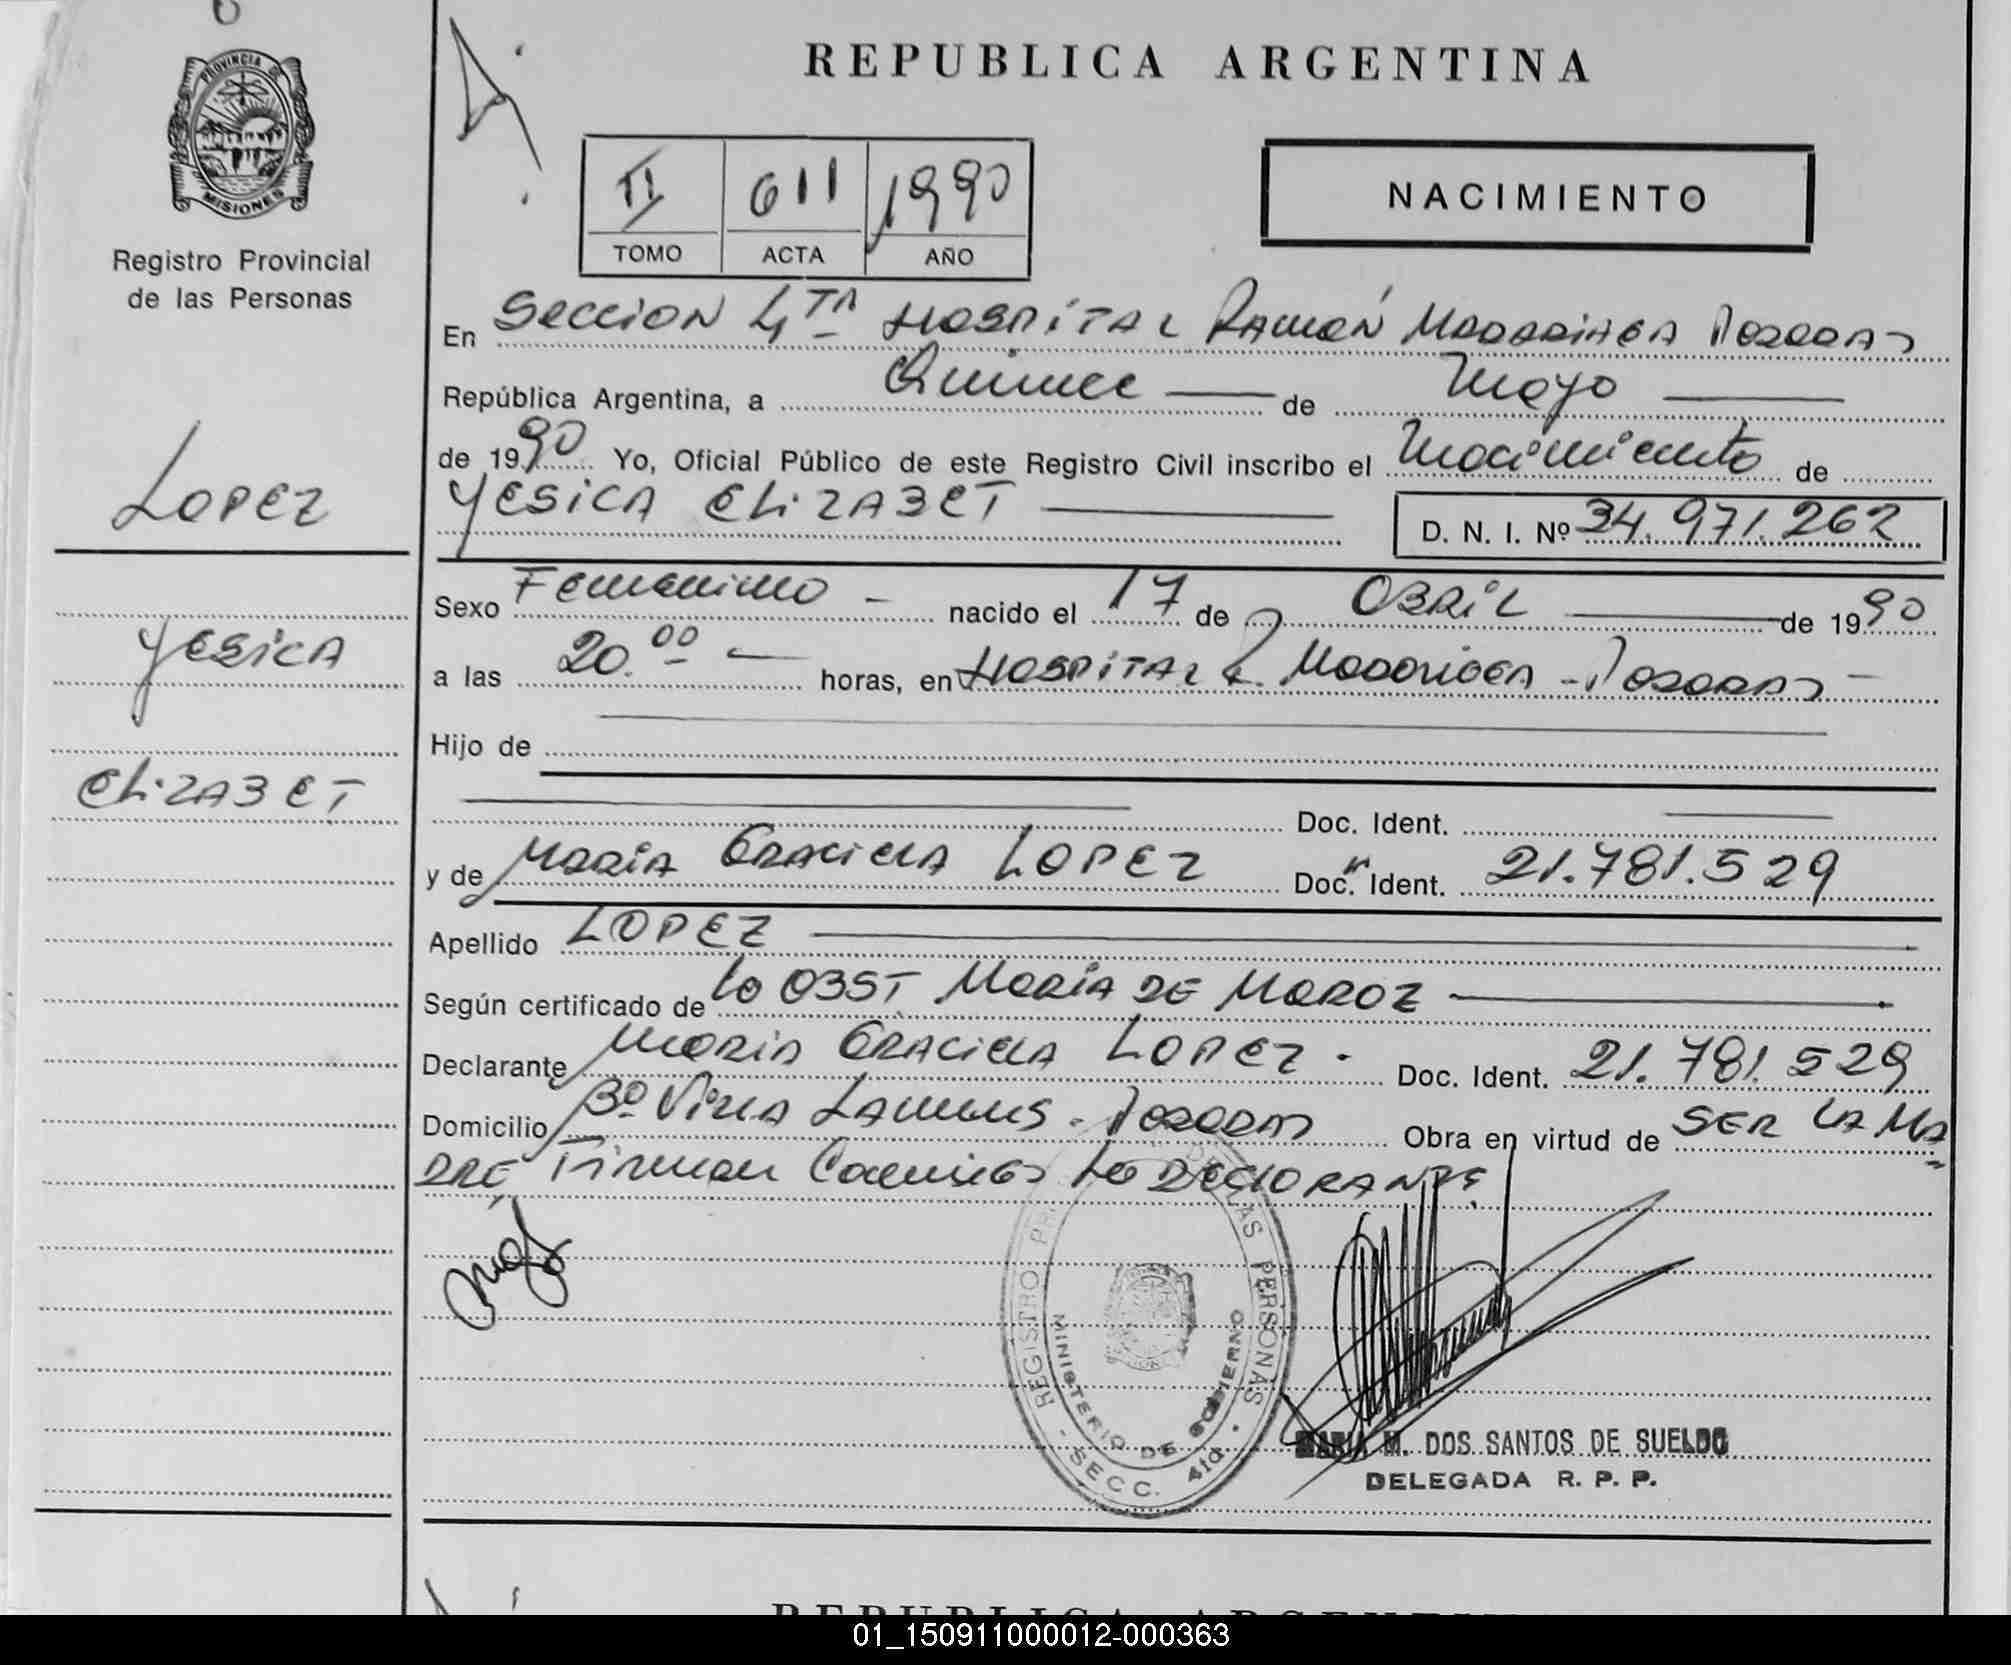 REPUBLICA ARGENTINA
PROVINCIA DE
MISIONES
Registro Provincial
de las Personas
II 611 1990
TOMO ACTA AÑO
NACIMIENTO
En Seccion 4TA Hospital Ramón Madariaga Posadas
República Argentina, a Quince de Mayo
de 1990 Yo, Oficial Público de este Registro Civil inscribo el Nacimiento de
YESICA ELIZABET D. N. I. Nº 34.971.262
Sexo Femenino - nacido el 17 de ABRIL de 1990
a las 20.00 horas, en Hospital R. Madariaga - Posadas -
Hijo de
Doc. Ident.
y de MARIA GRACIELA LOPEZ Doc. Ident. 21.781.529
Apellido LOPEZ
Según certificado de la OBST MARÍA DE MAROZ
Declarante MARIA GRACIELA LOPEZ. Doc. Ident. 21.781.529
Domicilio Bº Villa Lanús. Posadas Obra en virtud de SER LA MA
DRE, Firman Conmigo LA DECLARANTE.
LOPEZ
YESICA
ELIZABET
REGISTRO PR DE LAS PERSONAS
MINISTERIO DE GOBIERNO
- SECC. 4ta. -
MARIA M. DOS SANTOS DE SUELDO
DELEGADA R. P. P.
REPUBLICA ARGENTINA
01_150911000012-000363